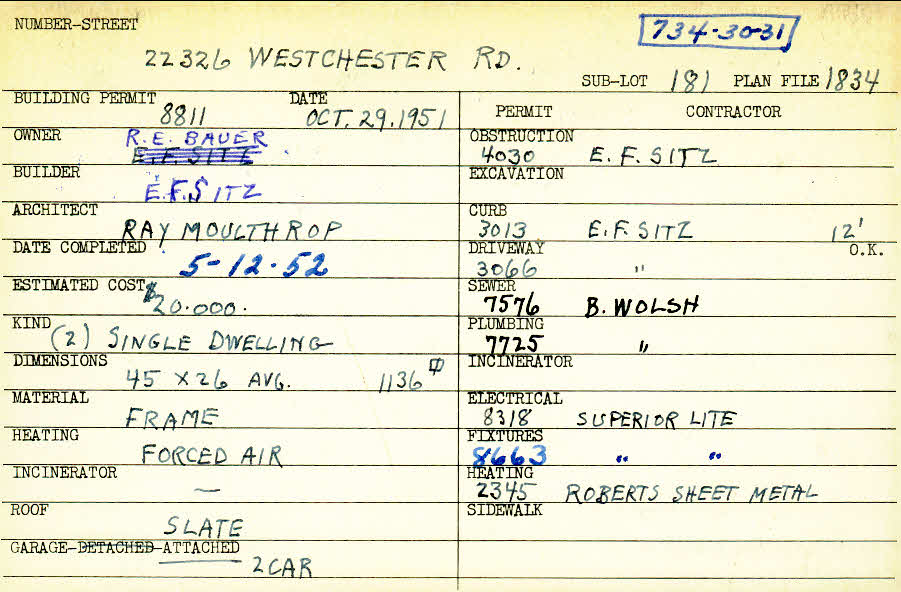 NUMBER-STREET
734-30-31
22326 WESTCHESTER RD.
SUB-LOT 181 PLAN FILE 1834
BUILDING PERMIT DATE
8811 OCT. 29. 1951
OWNER R.E. BAUER
E.F. SITZ
BUILDER
E.F. SITZ
ARCHITECT
RAY MOULTHROP
DATE COMPLETED
5-12-52
ESTIMATED COST $
20.000.
KIND
(2) SINGLE DWELLING
DIMENSIONS
45 X 26 AVG. 1136
MATERIAL
FRAME
HEATING
FORCED AIR
INCINERATOR
—
ROOF
SLATE
GARAGE-DETACHED-ATTACHED
2 CAR
PERMIT CONTRACTOR
OBSTRUCTION
4030 E.F. SITZ
EXCAVATION
CURB
3013 E.F. SITZ 12'
DRIVEWAY O.K.
3066 "
SEWER
7576 B. WOLSH
PLUMBING
7725 "
INCINERATOR
ELECTRICAL
8318 SUPERIOR LITE
FIXTURES
8663 " "
HEATING
2345 ROBERTS SHEET METAL
SIDEWALK